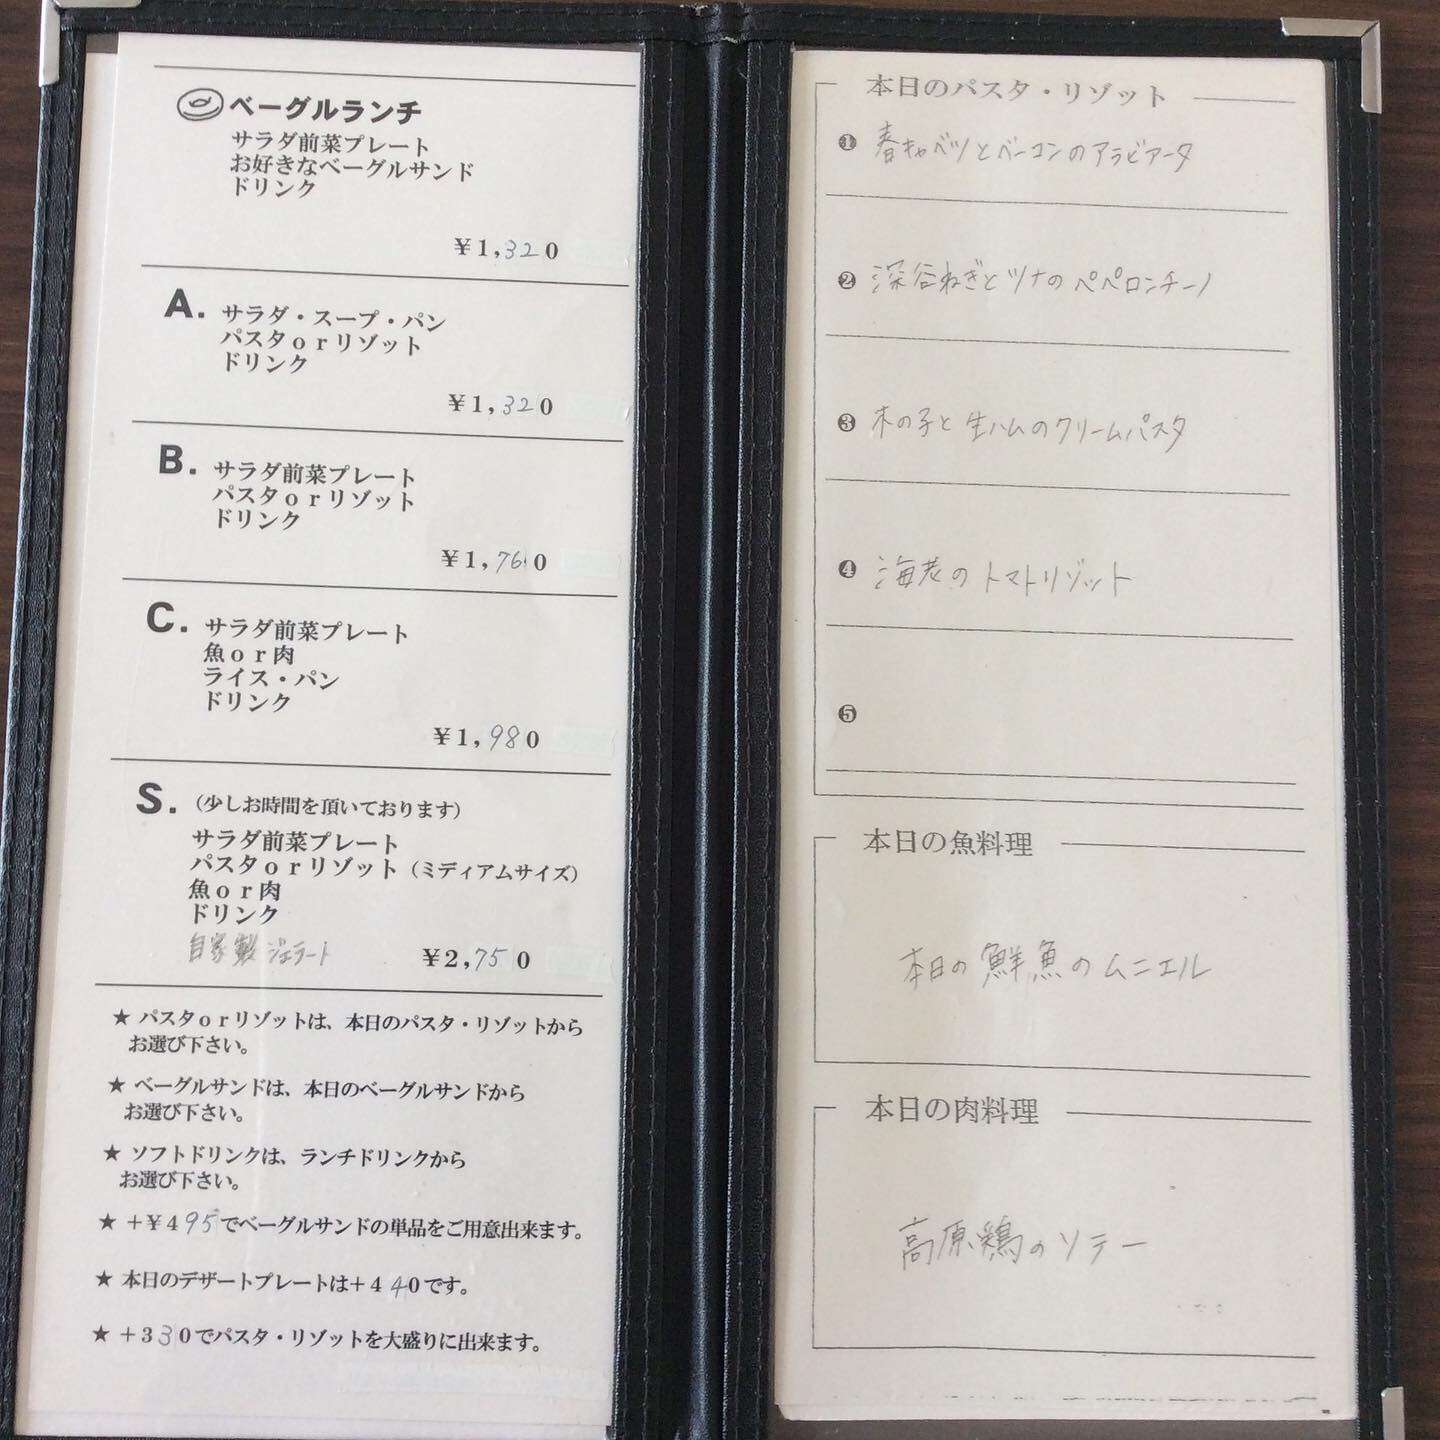 ベーグルランチ
サラダ前菜プレート
お好きなベーグルサンド
ドリンク
￥1,320
A. サラダ・スープ・パン
パスタorリゾット
ドリンク
￥1,320
B. サラダ前菜プレート
パスタorリゾット
ドリンク
￥1,760
C. サラダ前菜プレート
魚or肉
ライス・パン
ドリンク
￥1,980
S. (少しお時間を頂いております)
サラダ前菜プレート
パスタorリゾット (ミディアムサイズ)
魚or肉
ドリンク
自家製ジェラート ￥2,750
★ パスタorリゾットは、本日のパスタ・リゾットから
お選び下さい。
★ ベーグルサンドは、本日のベーグルサンドから
お選び下さい。
★ ソフトドリンクは、ランチドリンクから
お選び下さい。
★ +￥495でベーグルサンドの単品をご用意出来ます。
★ 本日のデザートプレートは+440です。
★ +330でパスタ・リゾットを大盛りに出来ます。
本日のパスタ・リゾット
❶ 春キャベツとベーコンのアラビアータ
❷ 深谷ねぎとツナのペペロンチーノ
❸ 木の子と生ハムのクリームパスタ
❹ 海老のトマトリゾット
❺
本日の魚料理
本日の鮮魚のムニエル
本日の肉料理
高原鶏のソテー